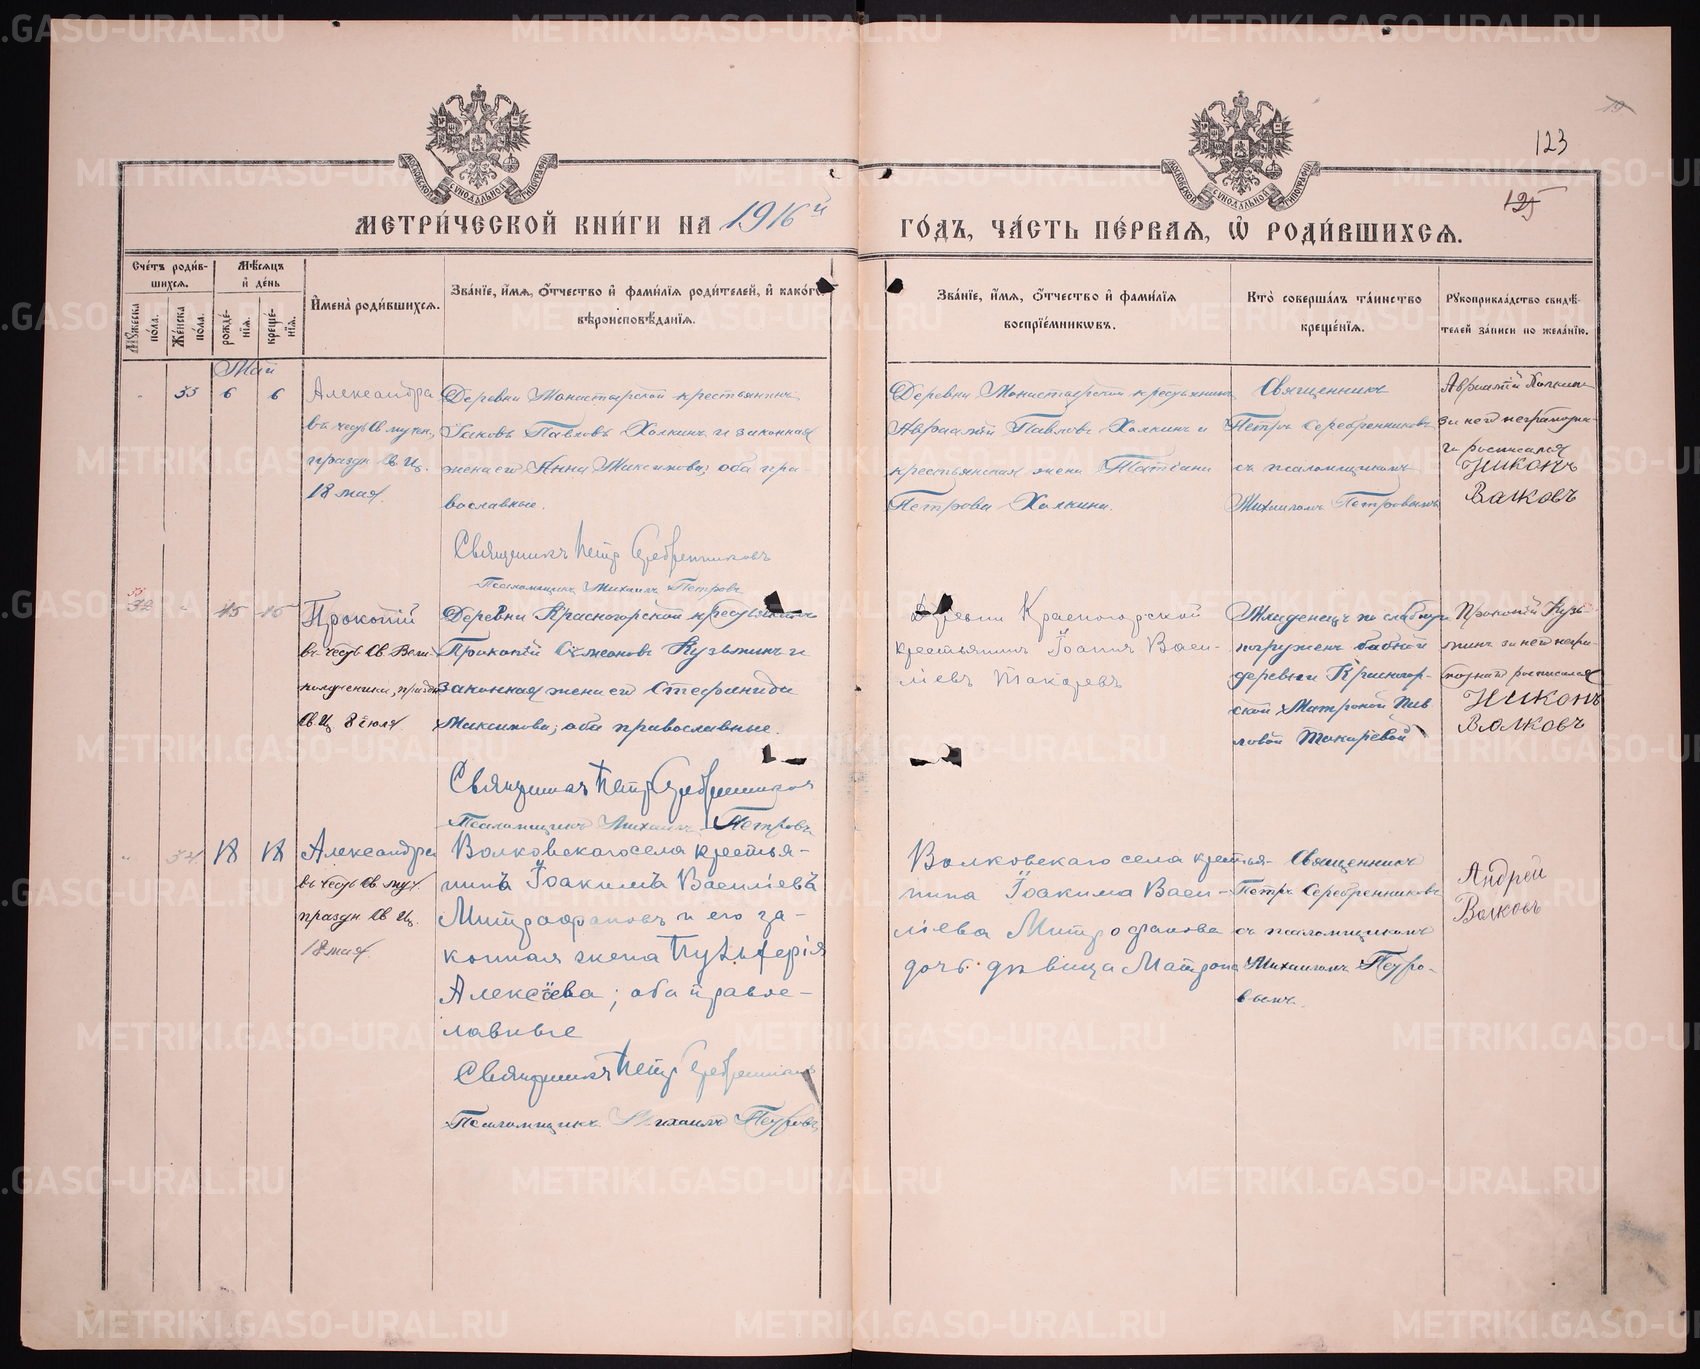 123
125
МЕТРИЧЕСКОЙ КНИГИ НА 1916й
ГОДЪ, ЧАСТЬ ПЕРВАЯ, Ѡ РОДИВШИХСЯ.
Счетъ родив-
шихся.
Мужеска
пола.
Женска
пола.
Мѣсяцъ
и день
рожде-
нія.
креще-
нія.
Имена родившихся.
Званіе, имя, отчество и фамилія родителей, и какого
вѣроисповѣданія.
Званіе, имя, отчество и фамилія
воспріемниковъ.
Кто совершалъ таинство
крещенія.
Рукоприкладство свидѣ-
телей записи по желанію.
Май
33 6 6
Александра
въ честь Св. мучен.,
праздн. Св. Ц.
18 мая.
Деревни Монастырской крестьянинъ
Іаковъ Павловъ Холкинъ и законная
жена его Анна Максимова; оба пра-
вославные.
Священникъ Петр Серебренниковъ
Псаломщикъ Михаилъ Петровъ
Деревни Монастырской крестьянинъ
Павловъ Холкинъ и
крестьянская жена Татіана
Петрова Холкина.
Священникъ
Петръ Серебренниковъ
съ псаломщикомъ
Михаиломъ Петровымъ
Холкин
за него неграмотна-
го росписался
Никонъ
Волковъ
15 15
Прокопій
въ честь Св. Вели-
комученика, праздн.
Св. Ц. 8 іюля
Деревни Красногорской крестьянинъ
Прокопій Сѵмеоновъ Кузьминъ и
законная жена его Стефанида
Максимова; оба православные.
Священникъ Петр Серебренниковъ
Псаломщикъ Михаилъ Петровъ
Деревни Красногорской
крестьянинъ Іоаннъ Васи-
ліевъ Токаревъ
Младенецъ по слабости
погруженъ бабкой
деревни Красногор-
ской Матроной Пав
ловой Токаревой
Прокопій Кузь-
минъ за него негра-
мотнаго росписался
Никонъ
Волковъ
34 18 18
Александра
въ честь Св. муч.
праздн. Св. Ц.
18 мая.
Волковскаго села крестья-
нинъ Іоакимъ Василіевъ
Митрофановъ и его за-
конная жена Пульферія
Алексѣева; оба право-
славные
Священникъ Петр Серебренниковъ
Псаломщикъ Михаилъ Петровъ
Волковскаго села крестья-
нина Іоакима Васи-
ліева Митрофанова
дочь дѣвица Матрона
Священникъ
Петръ Серебренниковъ
съ псаломщикомъ
Михаиломъ Петро-
вымъ.
Андрей
Волковъ
METRIKI.GASO-URAL.RU